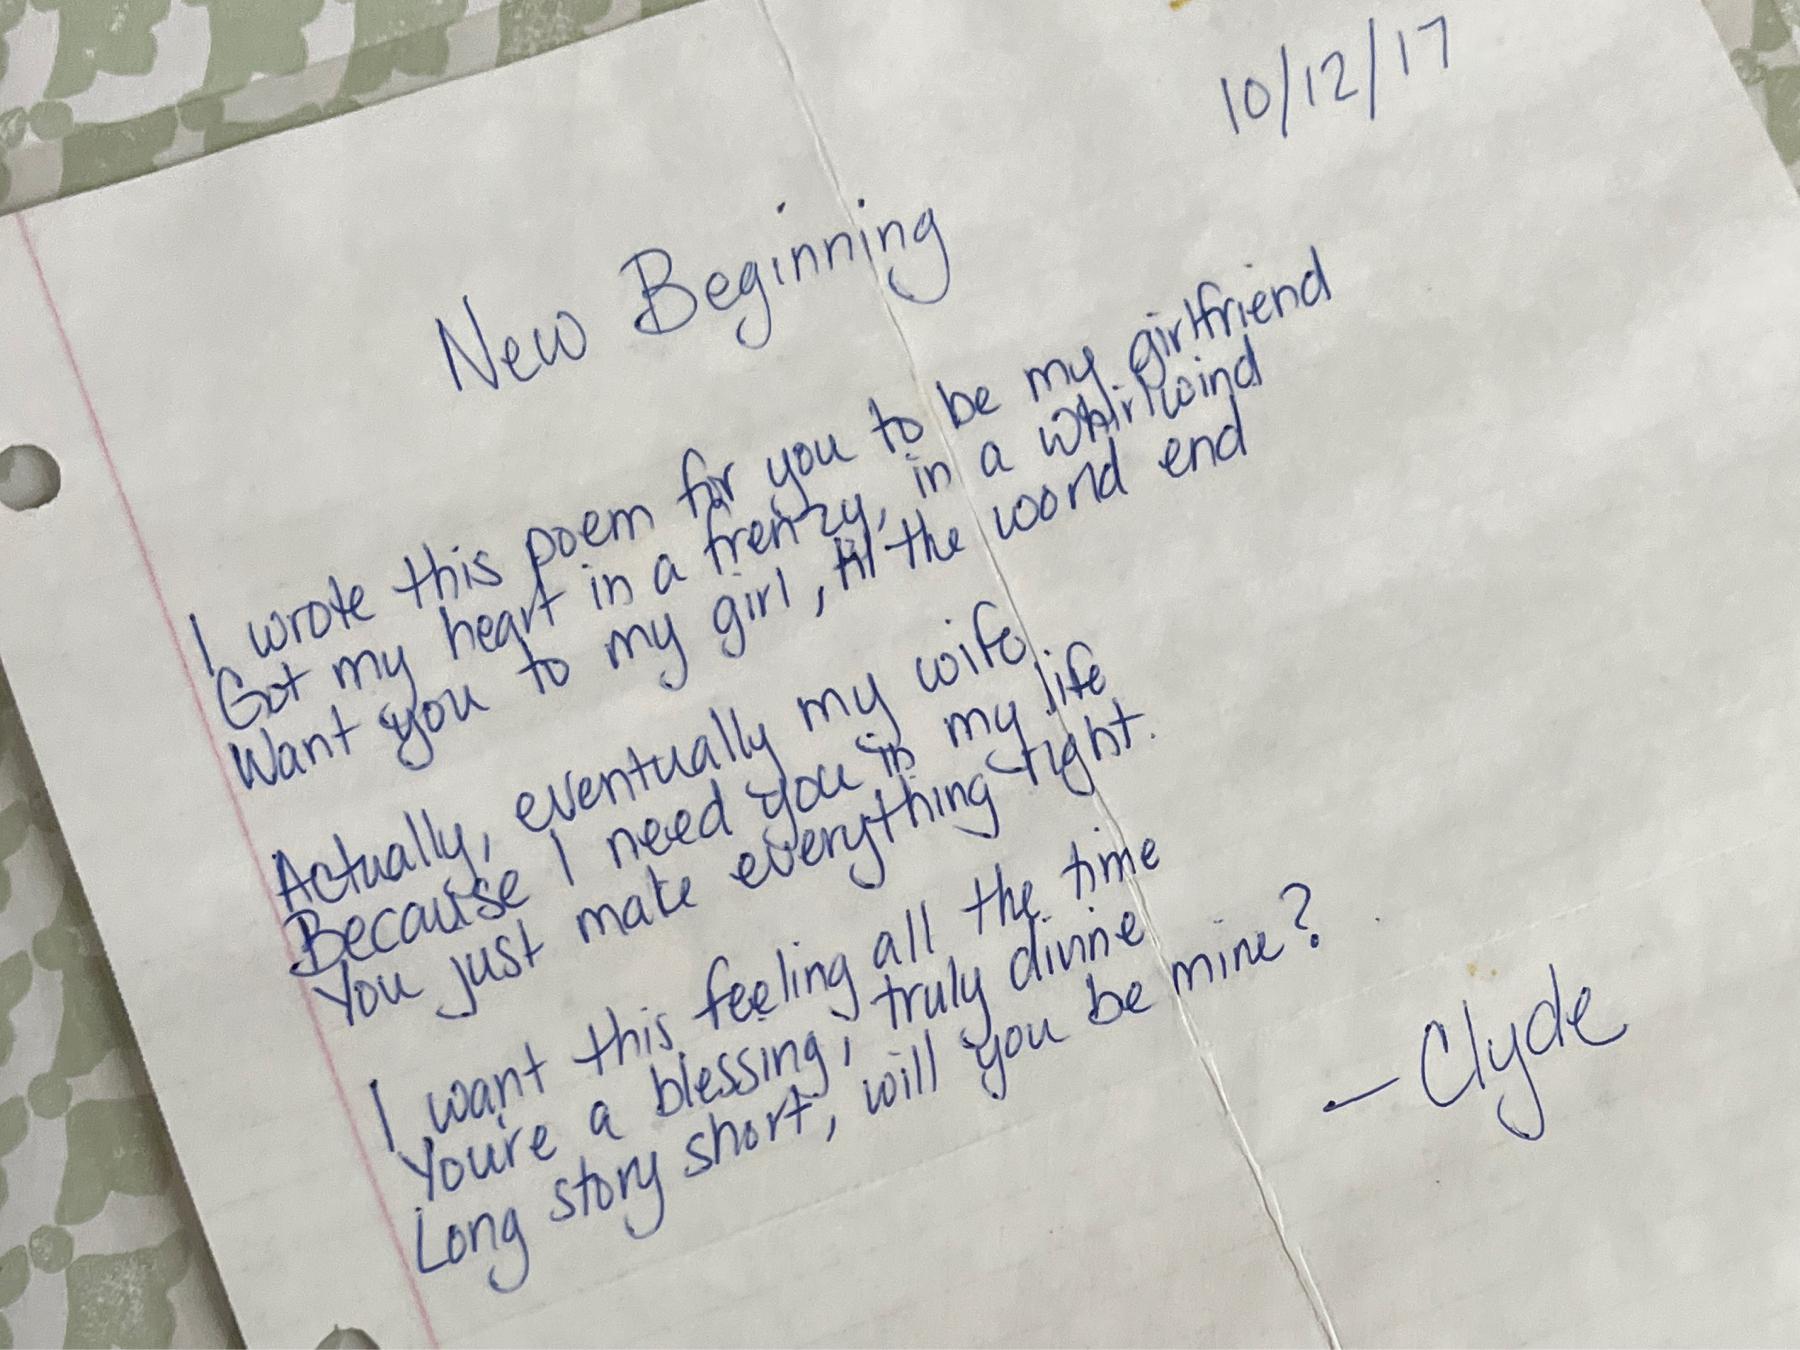 10/12/17
New Beginning
I wrote this poem for you to be my girlfriend
Got my heart in a frenzy, in a whirlwind
Want you to my girl, til the world end
Actually, eventually my wife
Because I need you in my life
You just make everything right.
I want this feeling all the time
You're a blessing, truly divine
Long story short, will you be mine?
— Clyde